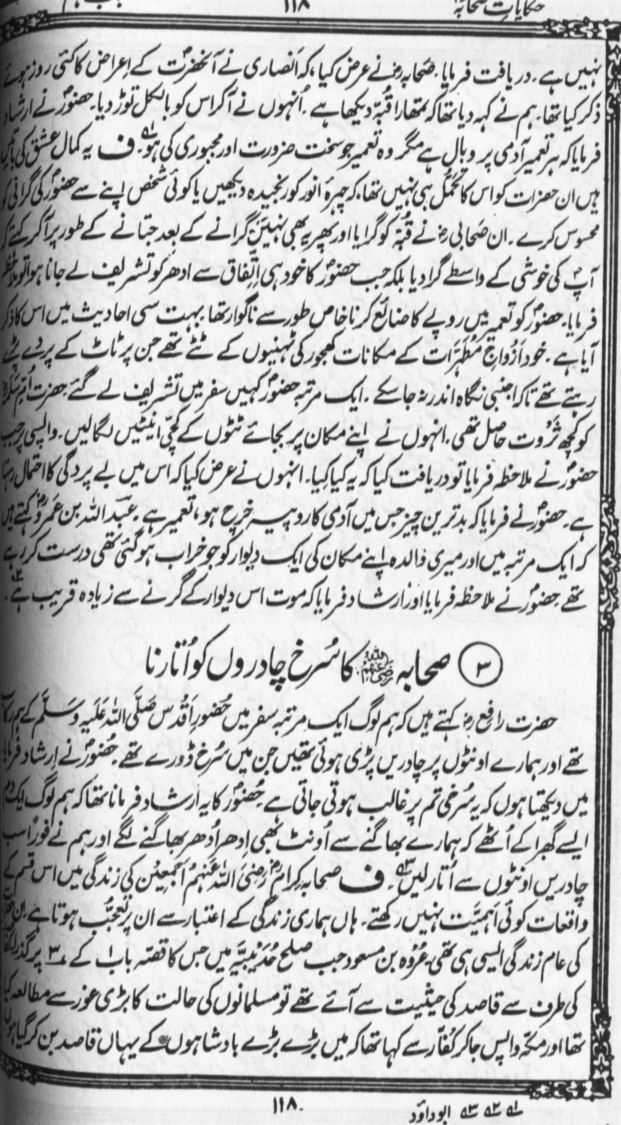 حکایاتِ صحابہؓ ۱۱۸
نہیں ہے۔ دریافت فرمایا۔ صحابہ رض نے عرض کیا، کہ انصاری نے آنحضرتؐ کے اِعراض کا کئی روز ہوئے
ذکر کیا تھا۔ ہم نے کہہ دیا تھا کہ تمھارا قُبّہ دیکھا ہے۔ اُنہوں نے آکر اس کو بالکل توڑ دیا۔ حضورؐ نے ارشاد
فرمایا کہ ہر تعمیر آدمی پر وبال ہے مگر وہ تعمیر جو سخت ضرورت اور مجبوری کی ہو۔ ف یہ کمالِ عشق کی باتیں
ہیں ان حضرات کو اس کا تحمُّل ہی نہیں تھا، کہ چہرۂ انور کو رنجیدہ دیکھیں یا کوئی شخص اپنے سے حضورؐ کی گرانی کو
محسوس کرے۔ ان صحابی رض نے قُبّہ کو گرایا اور پھر یہ بھی نہیں کہ گرانے کے بعد جتانے کے طور پر آکر کہتے کہ
آپؐ کی خوشی کے واسطے گرا دیا بلکہ جب حضورؐ کا خود ہی اِتّفاق سے ادھر کو تشریف لے جانا ہوا تو ملاحظہ
فرمایا۔ حضورؐ کو تعمیر میں روپے کا ضائع کرنا خاص طور سے ناگوار تھا۔ بہت سی احادیث میں اس کا ذکر
آیا ہے۔ خود اَزْواجِ مُطہَّرات کے مکانات کھجور کی ٹہنیوں کے ٹٹے تھے جن پر ٹاٹ کے پردے پڑے
رہتے تھے تاکہ اجنبی نگاہ اندر نہ جا سکے۔ ایک مرتبہ حضورؐ کہیں سفر میں تشریف لے گئے۔ حضرت اُمِّ سلمہؓ
کو کچھ ثَرْوت حاصل تھی۔ انہوں نے اپنے مکان پر بجائے ٹٹوں کے کچّی اینٹیں لگالیں۔ واپسی پر جب
حضورؐ نے ملاحظہ فرمایا تو دریافت کیا کہ یہ کیا کیا۔ انہوں نے عرض کیا کہ اس میں بے پردگی کا احتمال رہتا
ہے۔ حضورؐ نے فرمایا کہ بدترین چیز جس میں آدمی کا روپیہ خرچ ہو، تعمیر ہے۔ عبداللہ بن عَمْروؓ کہتے ہیں
کہ ایک مرتبہ میں اور میری والدہ اپنے مکان کی ایک دیوار کو جو خراب ہو گئی تھی درست کر رہے
تھے حضورؐ نے ملاحظہ فرمایا اور ارشاد فرمایا کہ موت اس دیوار کے گرنے سے زیادہ قریب ہے۔
۳ صحابہ رضی اللہ عنہم کا سُرخ چادروں کو اُتارنا
حضرت رافع رض کہتے ہیں کہ ہم لوگ ایک مرتبہ سفر میں حُضورِ اَقْدس صَلَّی اللہُ عَلَیْہِ وَسَلَّم کے ہم رکاب
تھے اور ہمارے اونٹوں پر چادریں پڑی ہوئی تھیں جن میں سُرخ ڈورے تھے۔ حضورؐ نے اِرشاد فرمایا
میں دیکھتا ہوں کہ یہ سُرخی تم پر غالب ہوتی جاتی ہے حضورؐ کا یہ ارشاد فرمانا تھا کہ ہم لوگ ایک دم
ایسے گھبرا کے اُٹھے کہ ہمارے بھاگنے سے اُونٹ بھی اِدھر اُدھر بھاگنے لگے اور ہم نے فوراً سب
چادریں اونٹوں سے اُتار لیں۔ ف صحابہ کِرام رَضِیَ اللہُ عَنْہُمْ اَجْمَعِیْن کی زندگی میں اس قسم کے
واقعات کوئی اَہمِیَّت نہیں رکھتے۔ ہاں ہماری زندگی کے اعتبار سے ان پر تعجُّب ہوتا ہے۔ ان حضرات
کی عام زندگی ایسی ہی تھی۔ عُرْوَہ بن مسعود جب صلحِ حُدَیْبِیَّہ میں جس کا قصّہ باب ۱ کے ۳ پر گذرا
کی طرف سے قاصد کی حیثیت سے آئے تھے تو مسلمانوں کی حالت کا بڑی غور سے مطالعہ کیا
تھا اور مکّہ واپس جا کر کُفّار سے کہا تھا کہ میں بڑے بڑے بادشاہوں کے یہاں قاصد بن کر گیا ہوں
۱۱۸
۱ـہ ۲ـہ ۳ـہ ابوداؤد